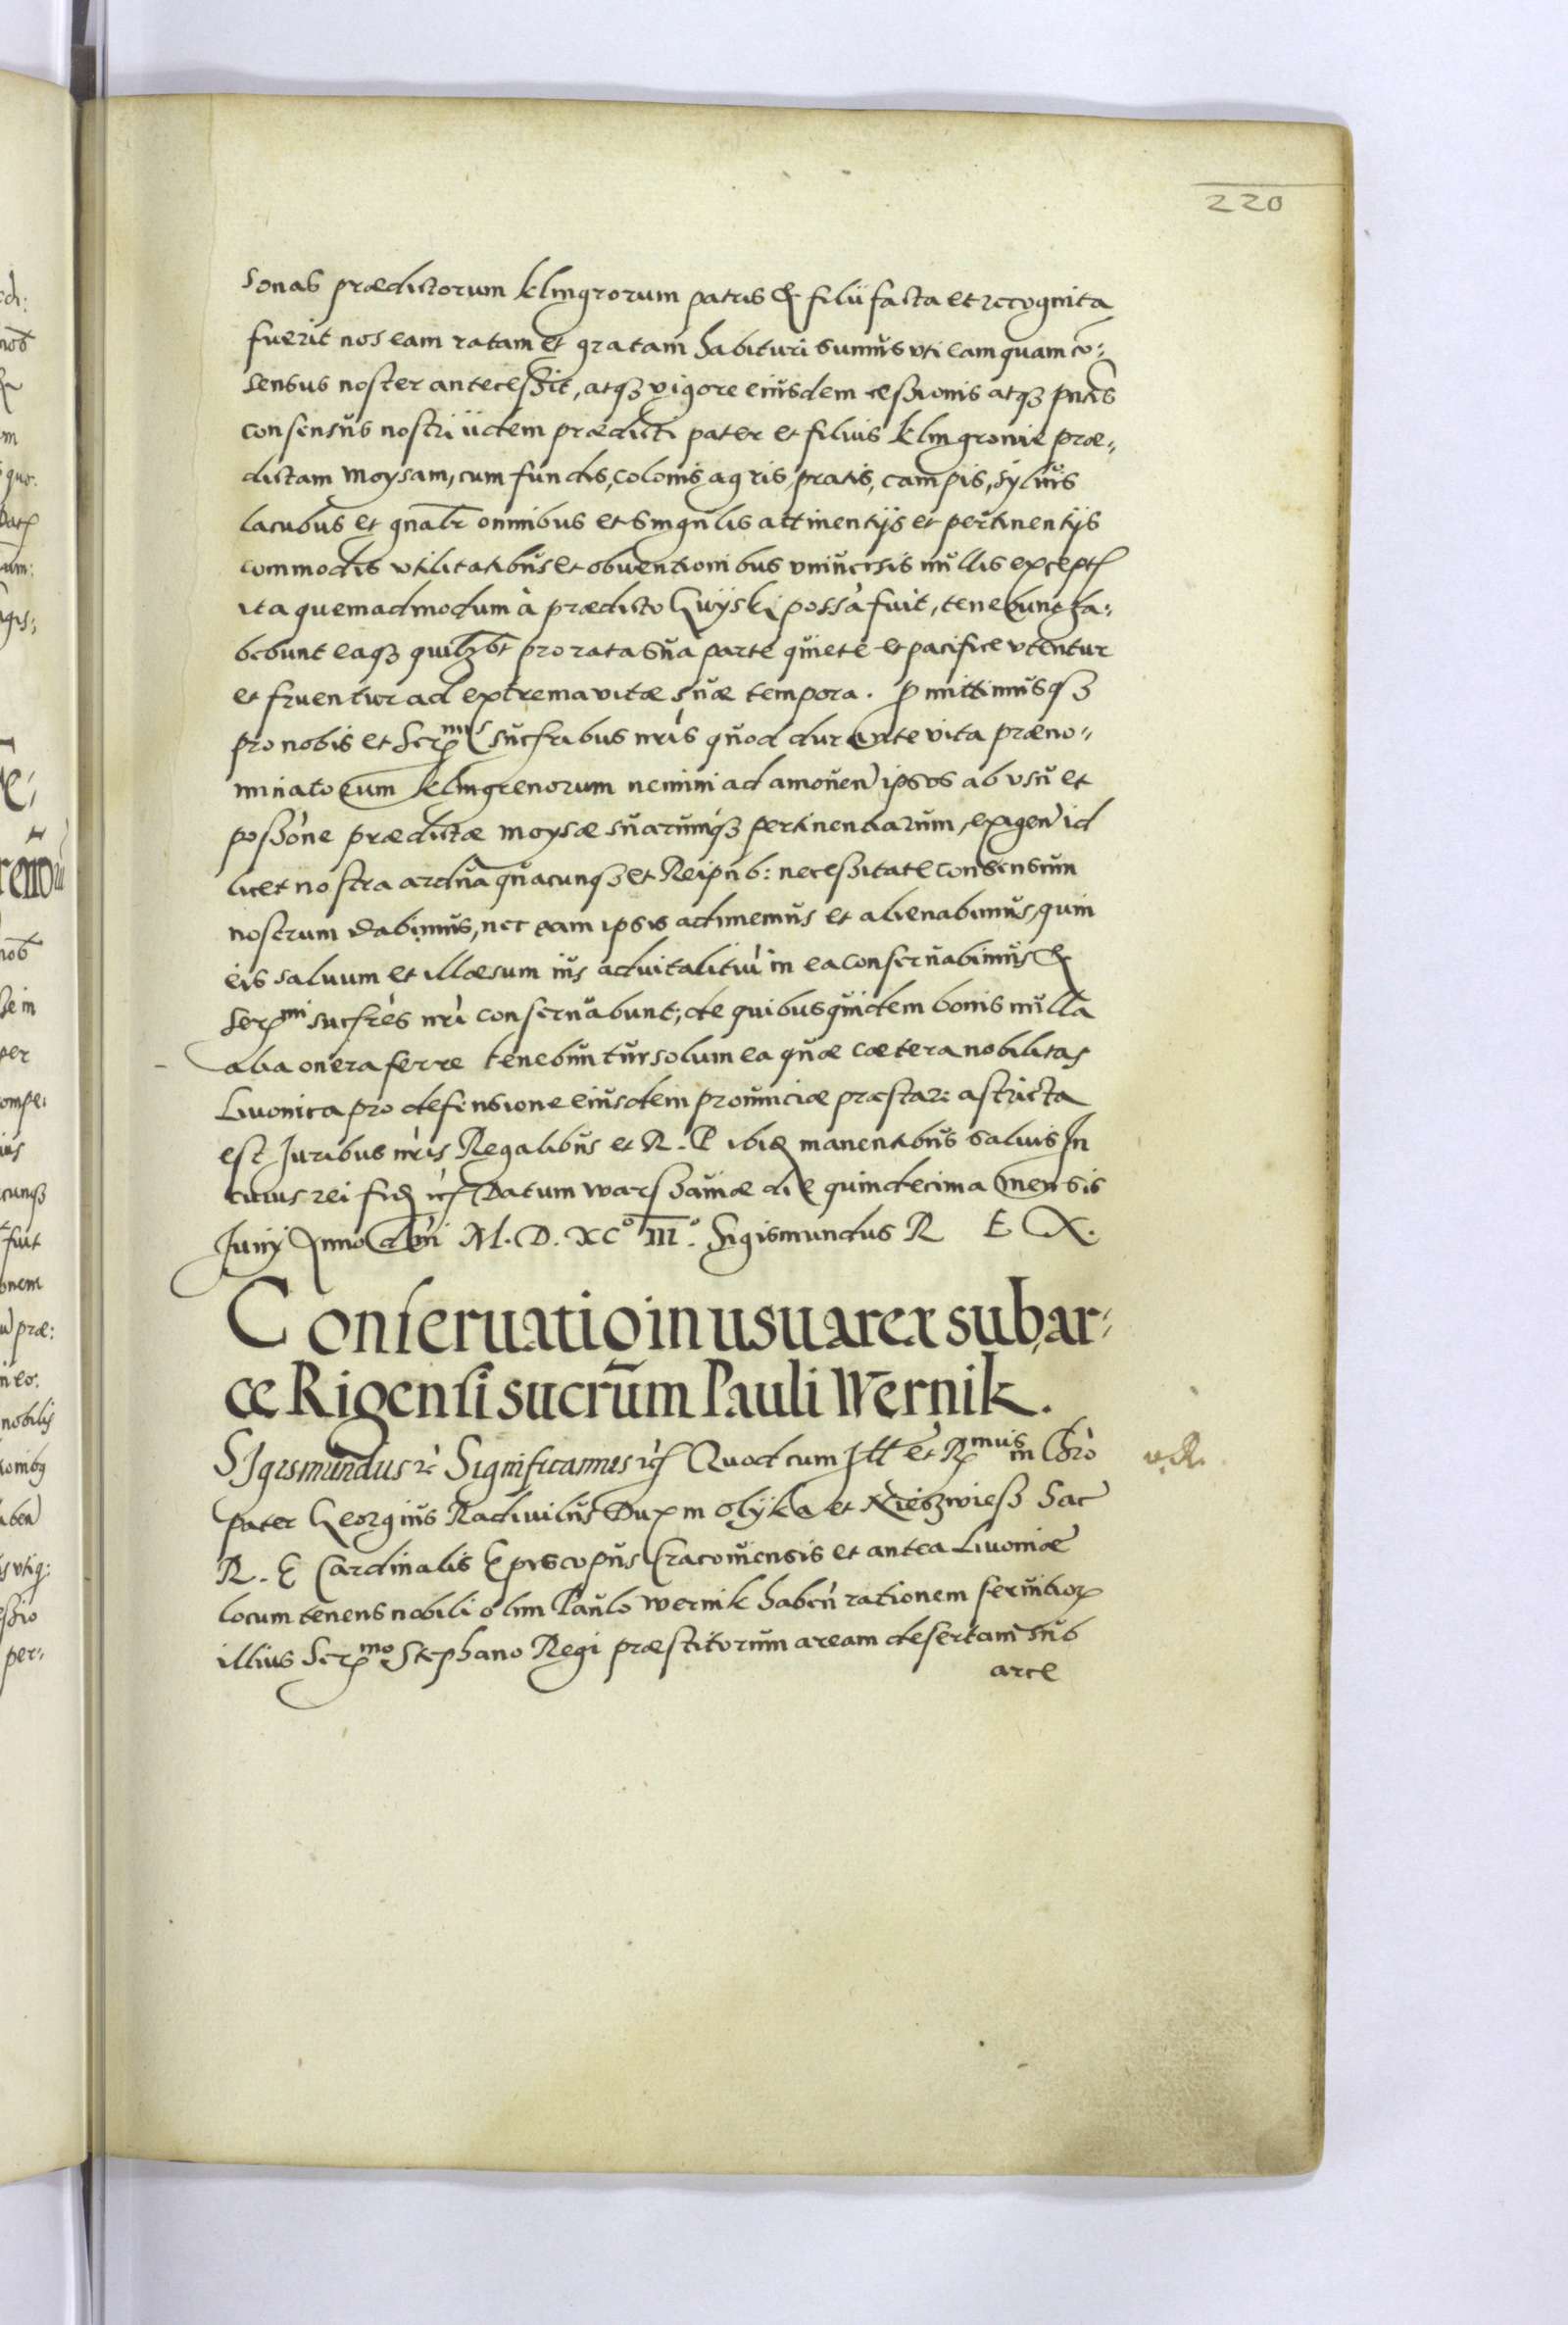 220
sonas prædictorum Klingrorum patris & filii facta et recognita
fuerit nos eam ratam et gratam habituri sumus uti eam quam cō:
sensus noster antecessit, atq3 vigore eiusdem cessionis atq3 pñtis
consensus nostri iidem prædicti pater et filius Klingrowie præ„
dictam Moysam, cum fundis, colonis, agris, pratis, campis, sylvis
lacubus et gnalr omnibus et singulis attinentijs et pertinentijs
commodis utilitatibus et obventionibus universis nullis except
ita quemadmodum à prædicto possà fuit, tenebunt ha:
bebunt eaq3 pro rata sua parte quiete et pacifice utentur
et fruentur ad extrema vitæ suæ tempora. Pmittimusq3
pro nobis et Ser mis sucfribus nris quod durante vita præno„
minatorum Klingrenorum nemini ad amouen ipsos ab usu et
possone prædictæ moysæ suarumq3 pertinentiarum, exigen id
licet nostra ardua quacunq3 et Reipub: necessitate consensum
nostrum dabimus, nec eam ipsis adimemus et alienabimus, quin
eis saluum et illæsum ius aduitalitiũ in ea conseruabimus &
Ser mi sucfres nri conseruabunt; de quibus quidem bonis nulla
alia onera ferre tenebuntur solum ea quæ cætera nobilitas
Livonica pro defensione eiusdem provinciæ præstare astricta
est Juribus nris Regalibus et R. P ibid manentibus saluis In
cuius rei fid Datum Warschaviæ die quindecima mensis
Junij Anno dni M. D. XC° III°. Sigismundus R E X.
Conseruatio in usu areæ sub ar„
ce Rigensi sucrum Pauli Wernik.
SIgismundus Significamus Quod cum Ill et R mus in Chro v. R.
pater Georgius Radivilus Dux in Olijka et Nieszwiesz Sac
R. E Cardinalis Episcopus Cracoviensis et antea Livoniæ
locum tenens nobili olim Paulo Wernik haben rationem seruitior
illius Ser mo Stephano Regi præstitorum aream desertam sub
arce